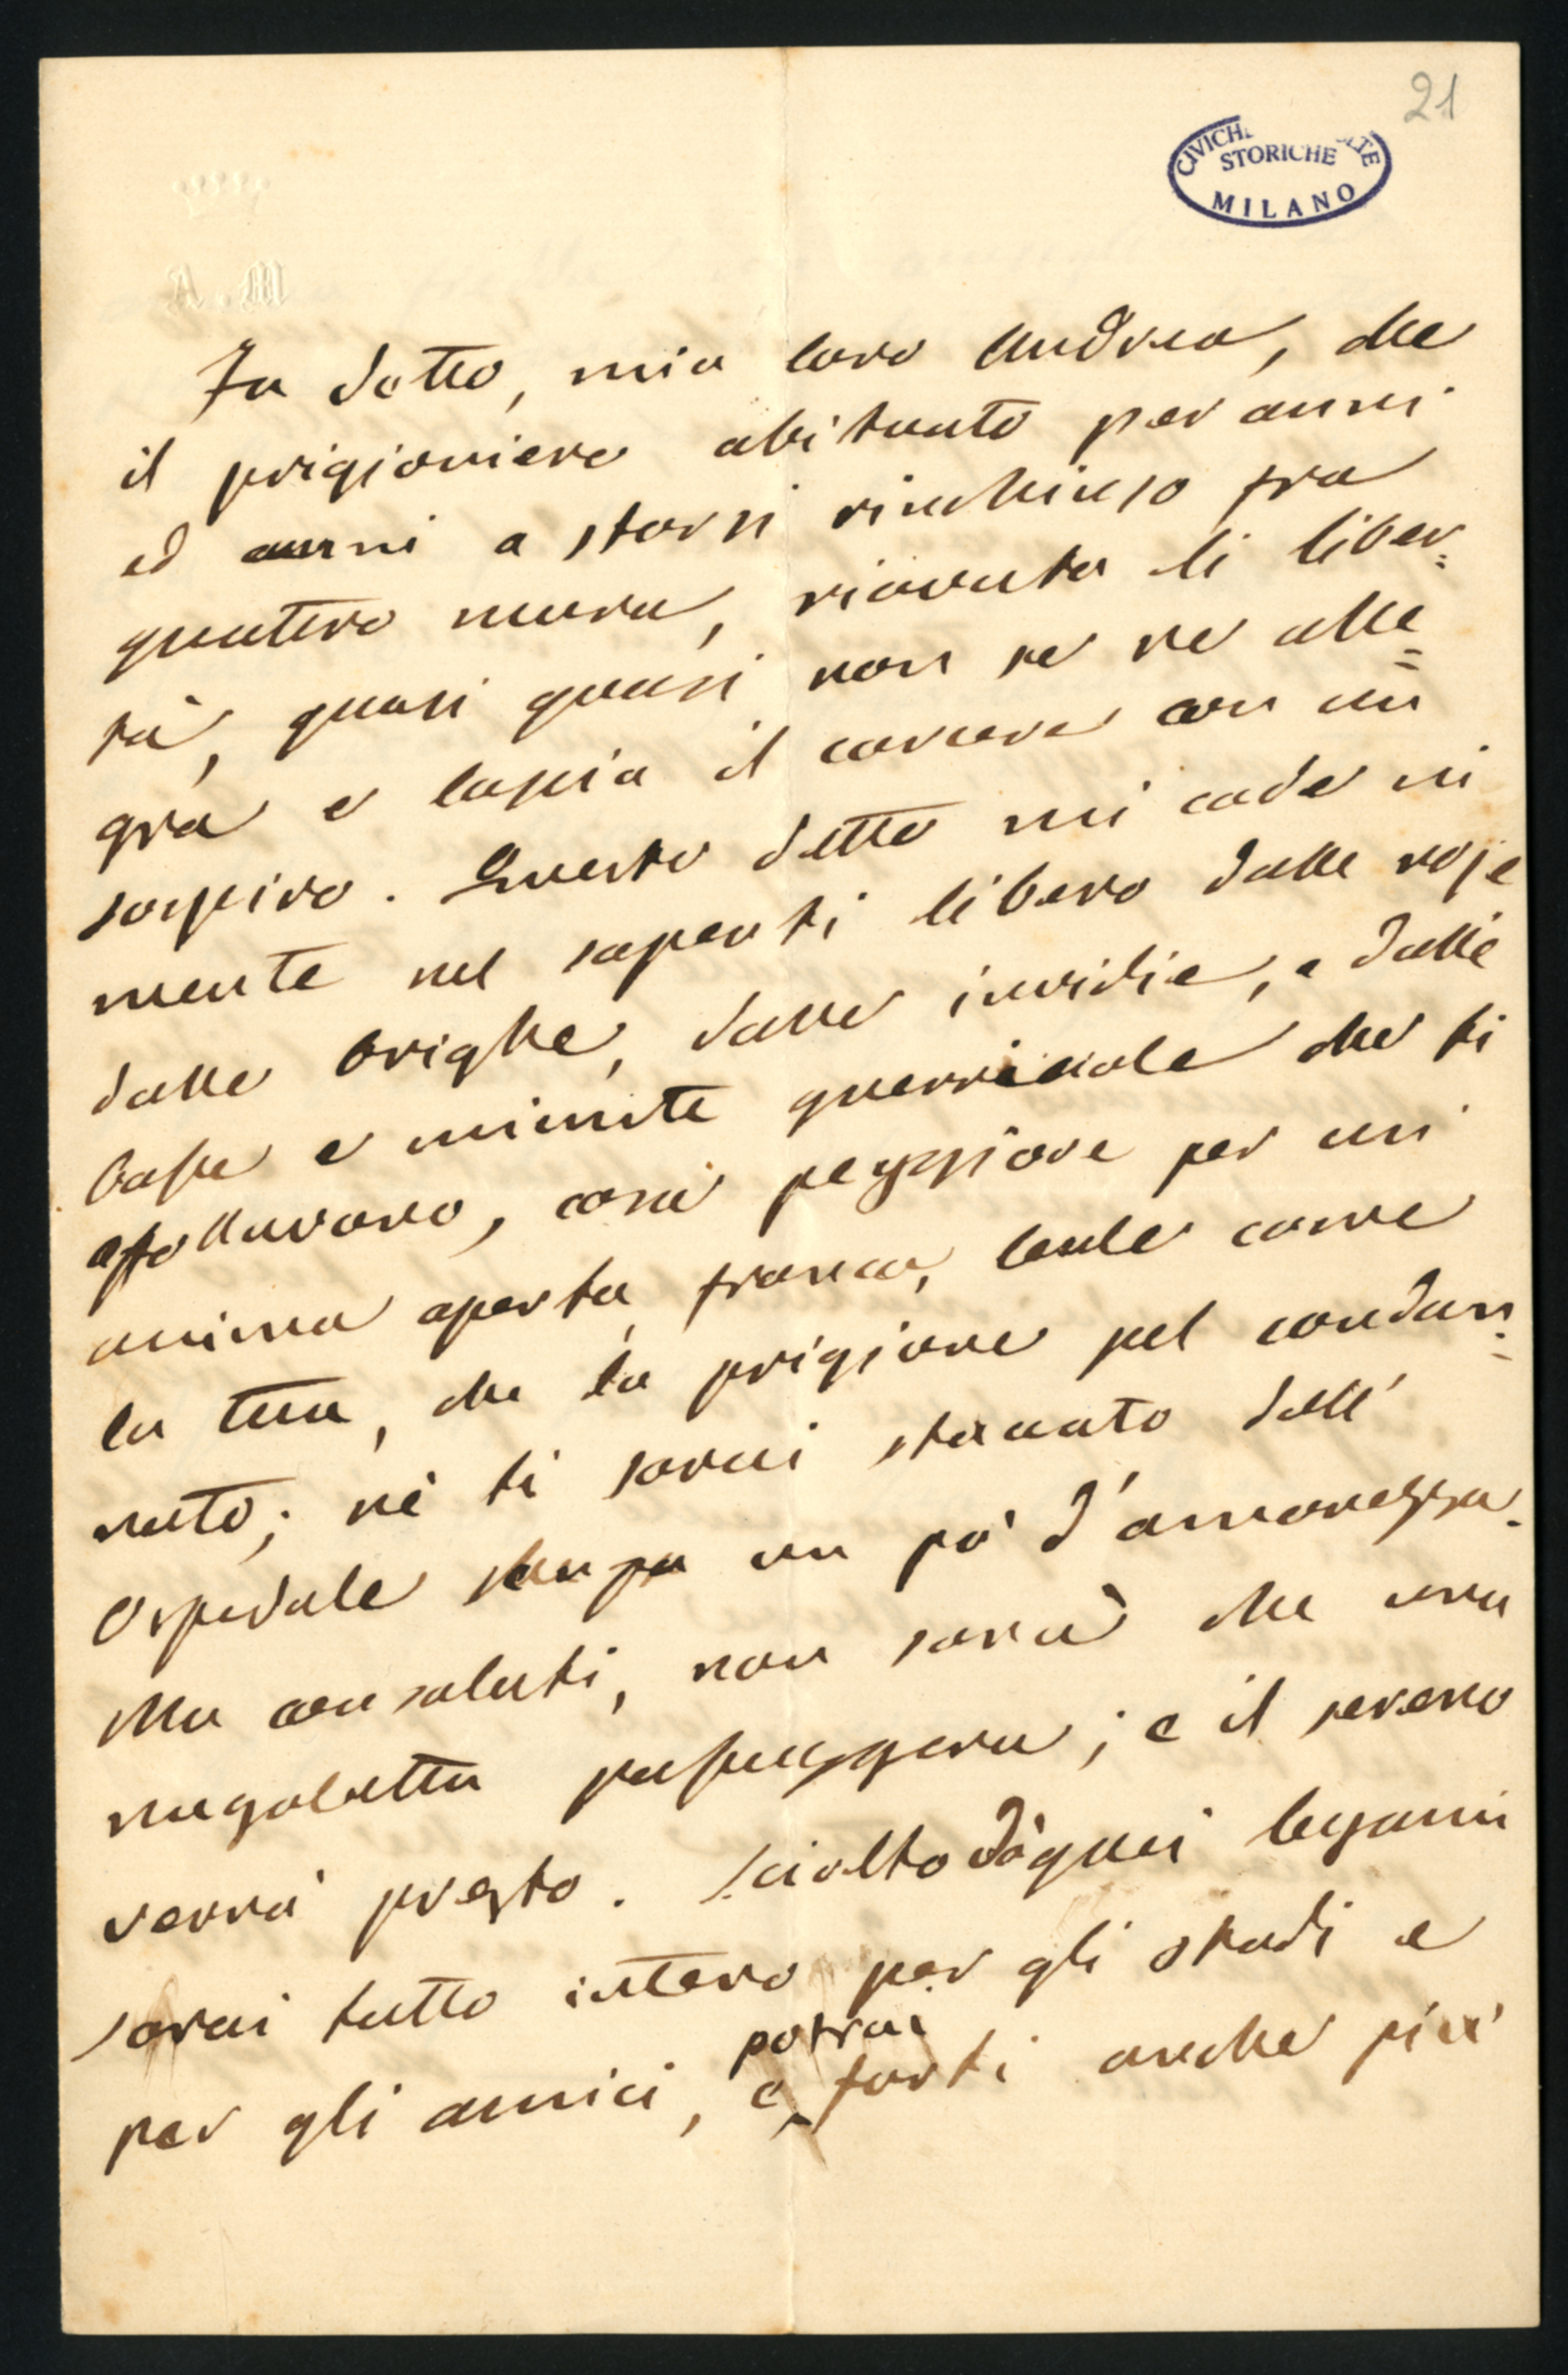 21
CIVICHE
STORICHE
MILANO
A. M
Fu detto, mio caro Andrea, che
il prigioniero abituato per anni
ed anni a starsi rinchiuso fra
quattro mura, riavuta li liber=
tà, quasi quasi non se ne alle=
gra e lascia il carcere con un
sospiro. Questo detto mi cade in
mente nel saperti libero dalle noje
dalle brighe, dalle invidie, e dalle
basse e minute guerricciole che ti
affollavano, cosa peggiore per un'
anima aperta, franca, leale come
la tua, che la prigione pel condan=
nato; nè ti sarai staccato dall'
Ospedale senza un pò d'amarezza.
Ma consolati, non sarà che una
nugoletta passeggera; e il sereno
verrà presto. Sciolto da quei legami
sarai tutto intero per gli studi e
potrai
per gli amici, e farti anche più